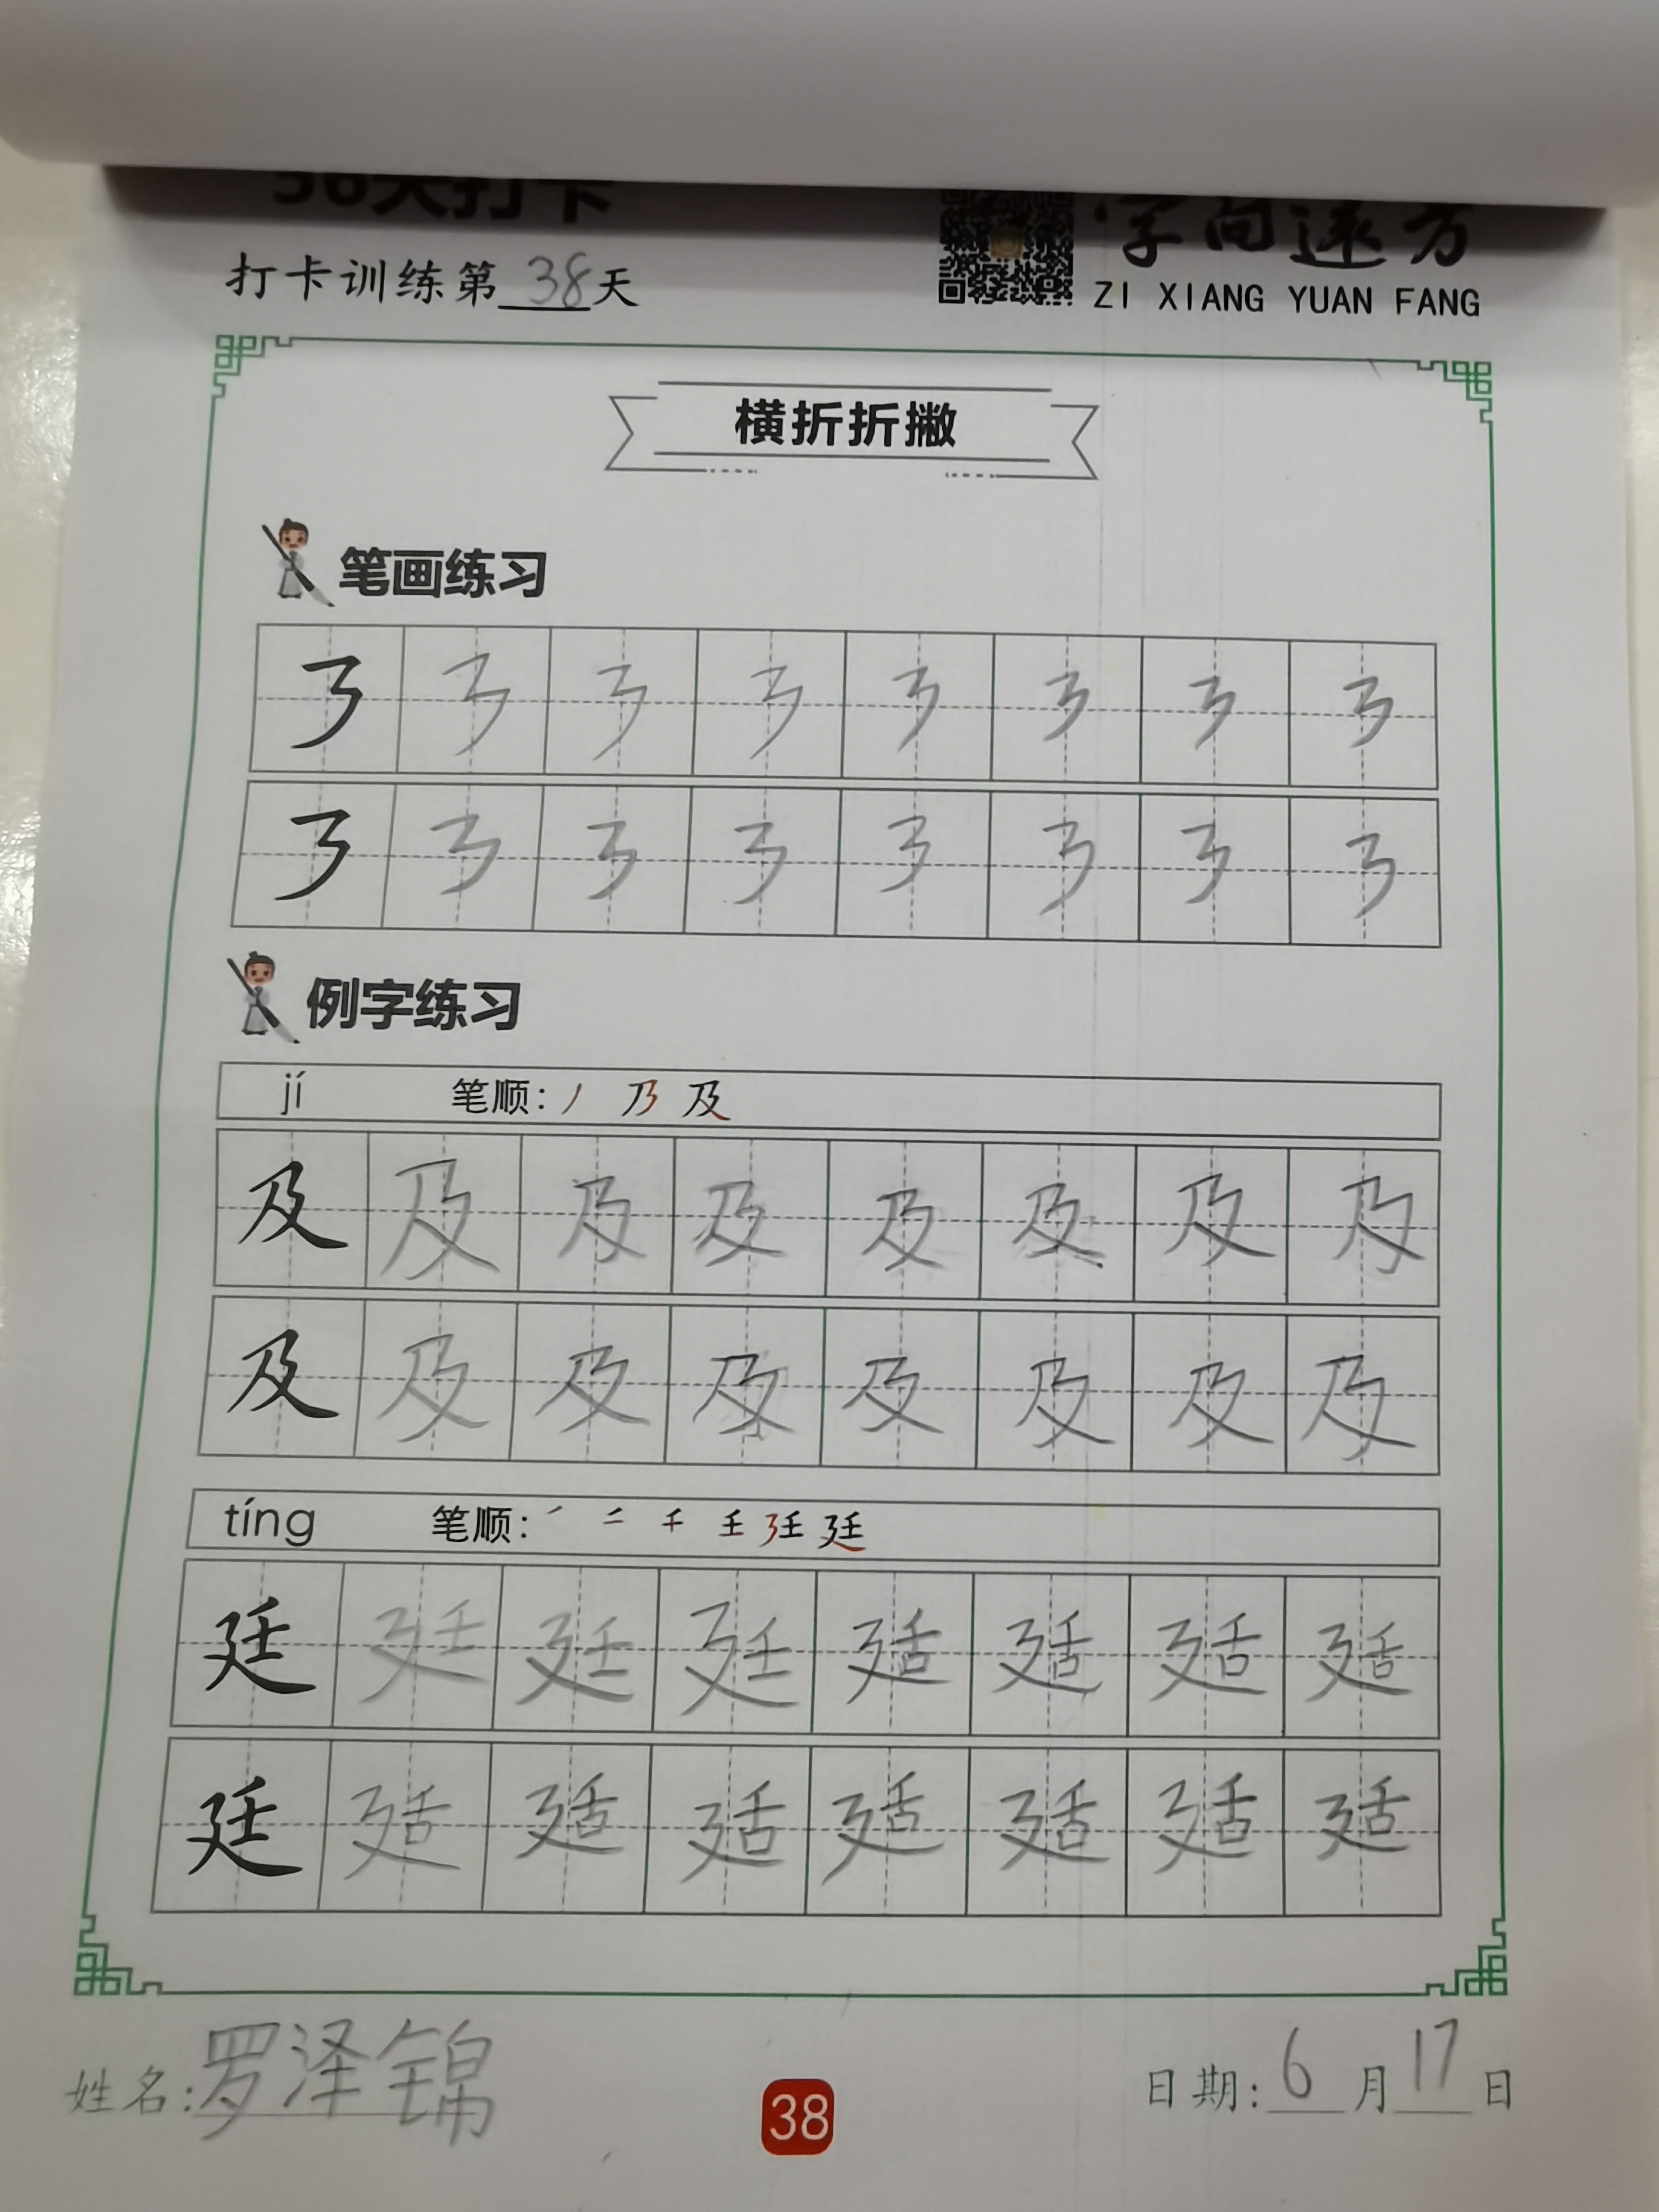 打卡训练第38天
字向远方
ZI XIANG YUAN FANG
横折折撇
笔画练习
例字练习
jí 笔顺: 丿 乃 及
及 及 及 及 及 及 及 及
及 及 及 及 及 及 及 及
tíng 笔顺: ㇒ 二 千 壬 廷 廷
廷 廷 廷 廷 适 适 适 适
廷 适 适 适 适 适 适 适
姓名:罗泽锦
38
日期:6月17日